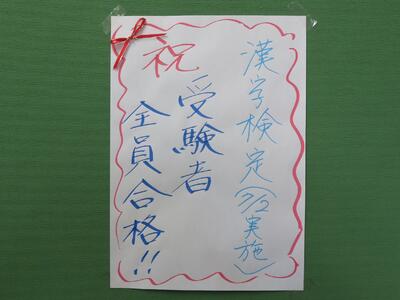 漢字検定(7/2実施)
祝
受験者
全員合格!!